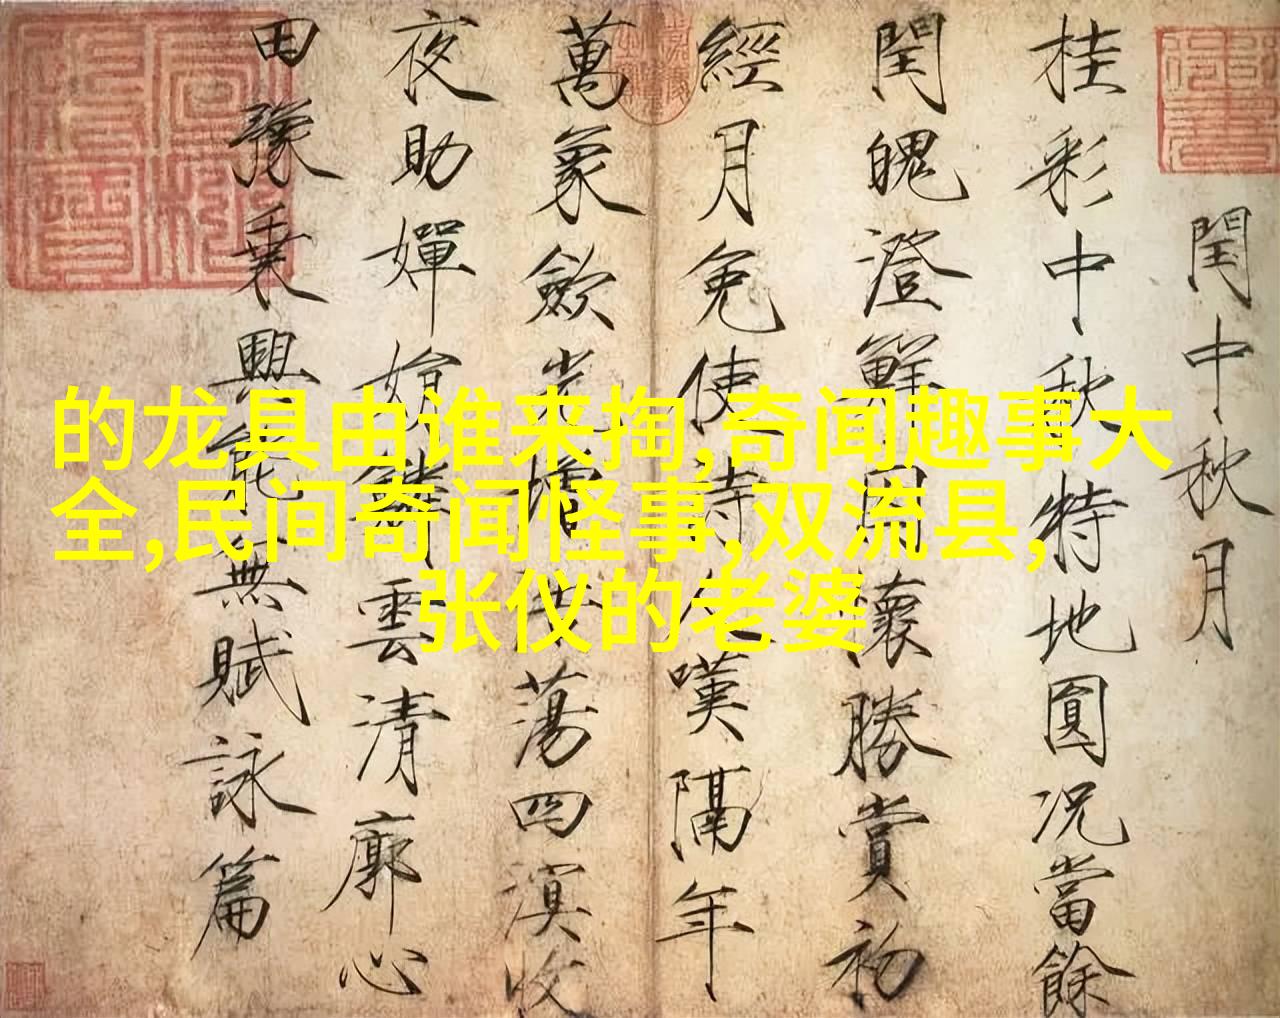 的龙具由谁来掏,奇闻趣事大
全,民间奇闻怪事,双流县,
张仪的老婆
閏中秋月
桂彩中秋特地圓況當餘
閏魄澄鮮因懷勝賞初
經月免使詩人嘆隔年
萬象歛光增浩蕩四溟收
夜助嬋娟鱗雲清廓心
田豫乘興能無賦詠篇